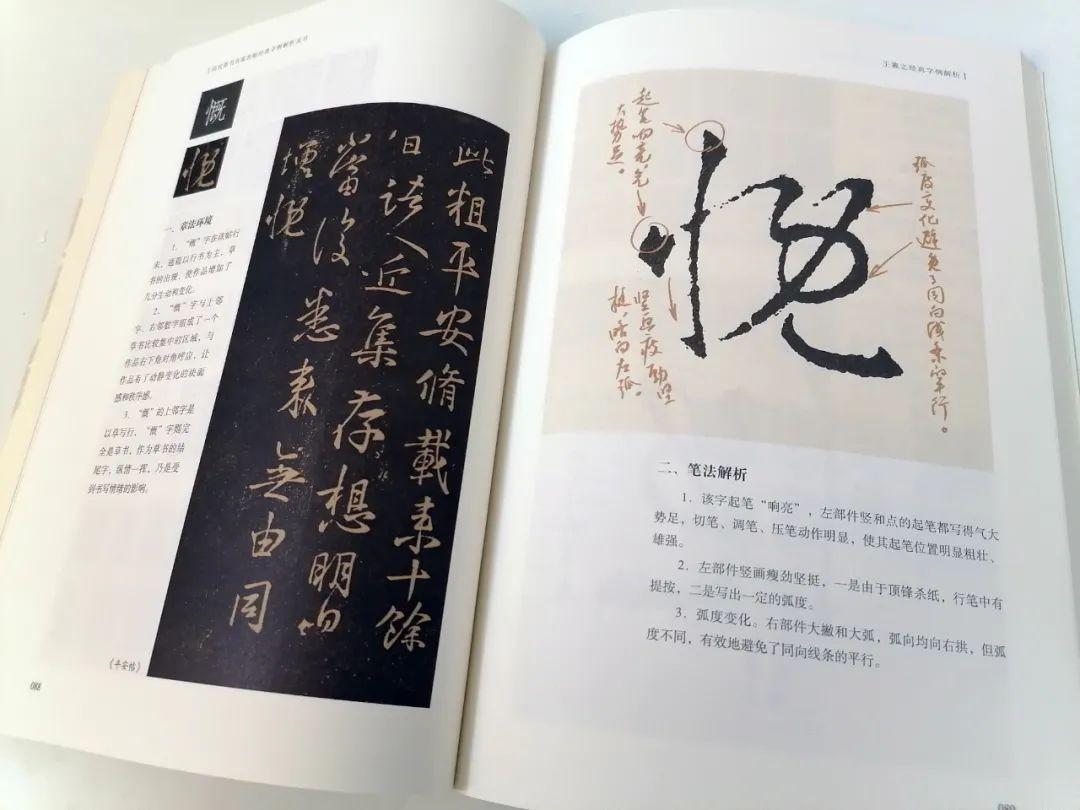 慨
慨
一、章法环境
1. “慨”字在该帖行
末，通篇以行书为主，草
书的出现，使作品增加了
几分生动和变化。
2. “慨”字与上邻
字、右邻数字组成了一个
草书比较集中的区域，与
作品右下角对角呼应，让
作品有了动静变化的块面
感和秩序感。
3. “慨”的上邻字是
以草写行，“慨”字则完
全是草书，作为草书的结
尾字，纵情一挥，乃是受
到书写情绪的影响。
此粗平安脩載来十餘
日諸人近集存想明日
當復悉来無由同
增慨
《平安帖》
088
王羲之经典字例解析 I
起笔响亮气
大势足。
慨
竖画瘦劲坚
挺，略向左弧。
弧度变化避免了同向线条的平行。
二、笔法解析
1. 该字起笔“响亮”，左部件竖和点的起笔都写得气大
势足，切笔、调笔、压笔动作明显，使其起笔位置明显粗壮、
雄强。
2. 左部件竖画瘦劲坚挺，一是由于顶锋杀纸，行笔中有
提按，二是写出一定的弧度。
3. 弧度变化。右部件大撇和大弧，弧向均向右拱，但弧
度不同，有效地避免了同向线条的平行。